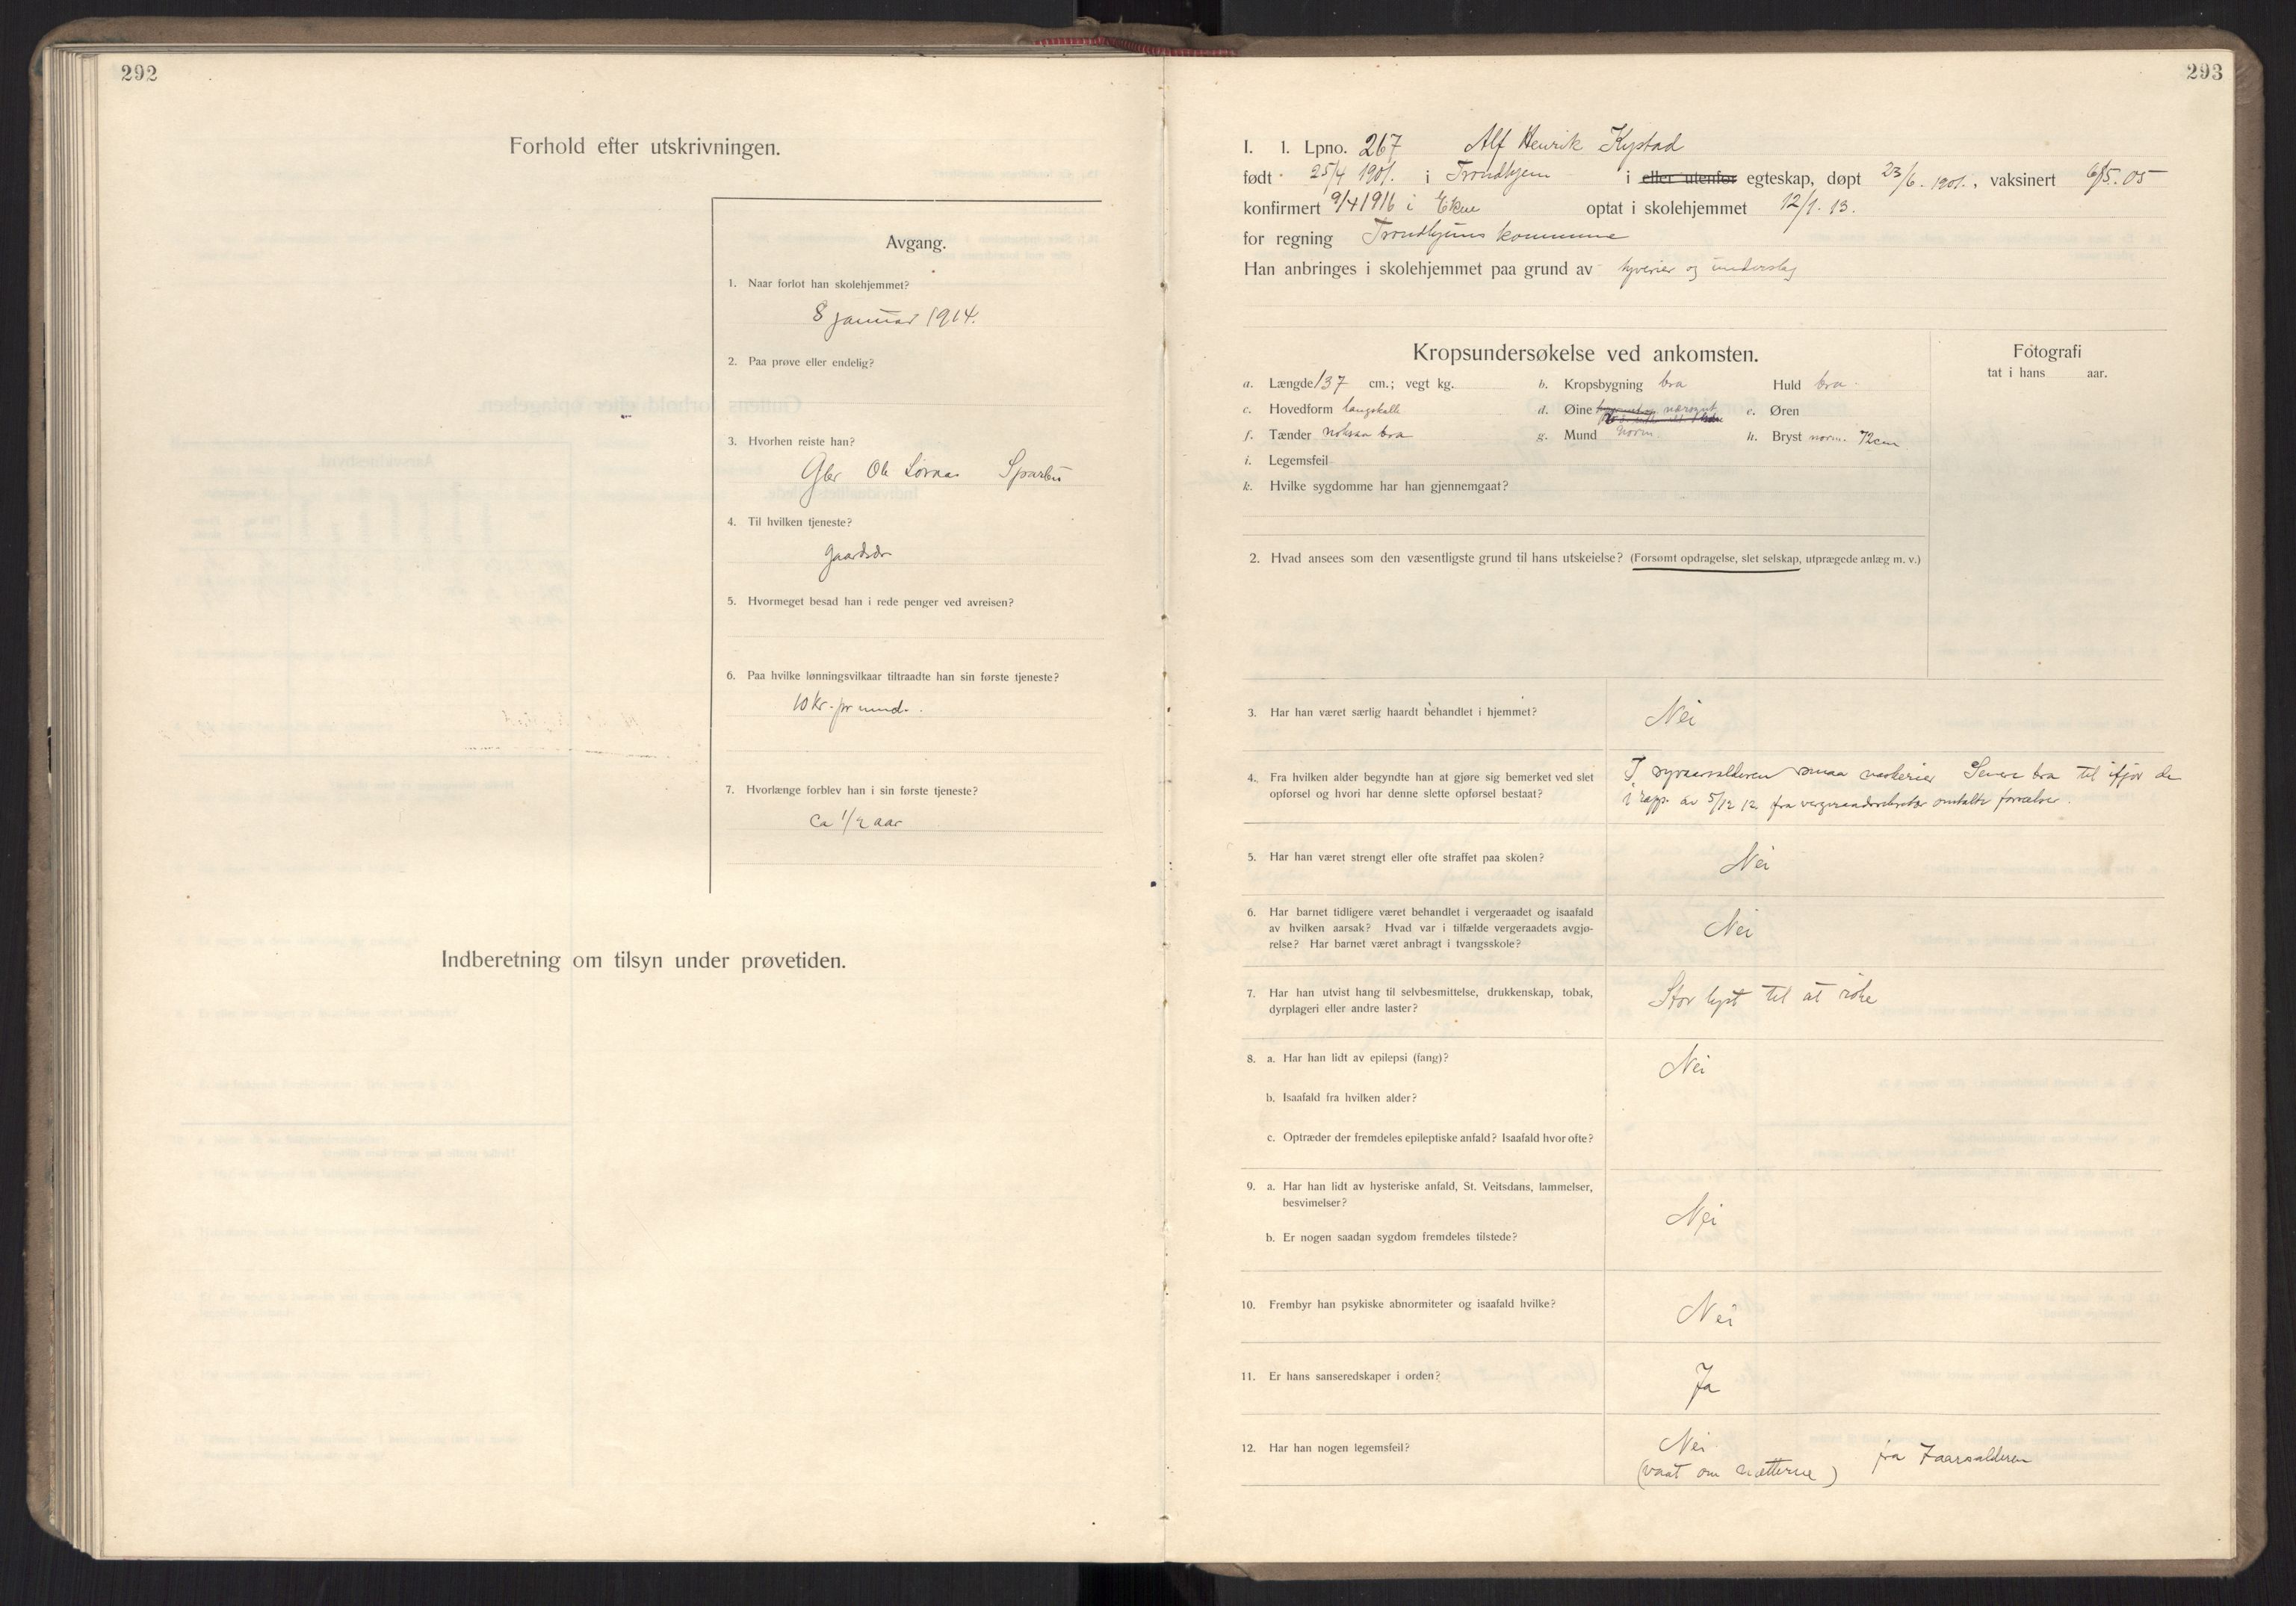 292
Forhold efter utskrivningen.
Avgang.
1. Naar forlot han skolehjemmet?
8 januar 1914.
2. Paa prøve eller endelig?
3. Hvorhen reiste han?
Gbr Ole Sparbu
4. Til hvilken tjeneste?
5. Hvormeget besad han i rede penger ved avreisen?
6. Paa hvilke lønningsvilkaar tiltraadte han sin første tjeneste?
10 kr. pr mnd.
7. Hvorlænge forblev han i sin første tjeneste?
Ca 1/2 aar
Indberetning om tilsyn under prøvetiden.
293
I. 1. Lpno. 267 Alf Henrik Kystad
født 25/4 1901. i Trondhjem i eller utenfor egteskap, døpt 23/6. 1901., vaksinert 6/5. 05
konfirmert 9/4 1916 i Ekne optat i skolehjemmet 12/1. 13.
for regning Trondhjems kommune
Han anbringes i skolehjemmet paa grund av tyverier og underslag
Kropsundersøkelse ved ankomsten.
Fotografi
tat i hans aar.
a. Længde 137 cm.; vegt kg. b. Kropsbygning bra Huld bra
c. Hovedform langskalle d. Øine nærsynt e. Øren
f. Tænder noksaa bra g. Mund norm. h. Bryst norm. 72cm
i. Legemsfeil
k. Hvilke sygdomme har han gjennemgaat?
2. Hvad ansees som den væsentligste grund til hans utskeielse? (Forsømt opdragelse, slet selskap, utprægede anlæg m. v.)
3. Har han været særlig haardt behandlet i hjemmet?
Nei
4. Fra hvilken alder begyndte han at gjøre sig bemerket ved slet
opførsel og hvori har denne slette opførsel bestaat?
I syvaarsalderen smaa naskerier Senere bra til ifjor de
i rapp. av 5/12 12 fra vergeraadssekretær omtalte forseelser.
5. Har han været strengt eller ofte straffet paa skolen?
Nei
6. Har barnet tidligere været behandlet i vergeraadet og isaafald
av hvilken aarsak? Hvad var i tilfælde vergeraadets avgjø-
relse? Har barnet været anbragt i tvangsskole?
Nei
7. Har han utvist hang til selvbesmittelse, drukkenskap, tobak,
dyrplageri eller andre laster?
Stor lyst til at røke
8. a. Har han lidt av epilepsi (fang)?
Nei
b. Isaafald fra hvilken alder?
c. Optræder der fremdeles epileptiske anfald? Isaafald hvor ofte?
9. a. Har han lidt av hysteriske anfald, St. Veitsdans, lammelser,
besvimelser?
Nei
b. Er nogen saadan sygdom fremdeles tilstede?
10. Frembyr han psykiske abnormiteter og isaafald hvilke?
Nei
11. Er hans sanseredskaper i orden?
Ja
12. Har han nogen legemsfeil?
Nei
(vaat om nætterne) fra 7aarsalderen